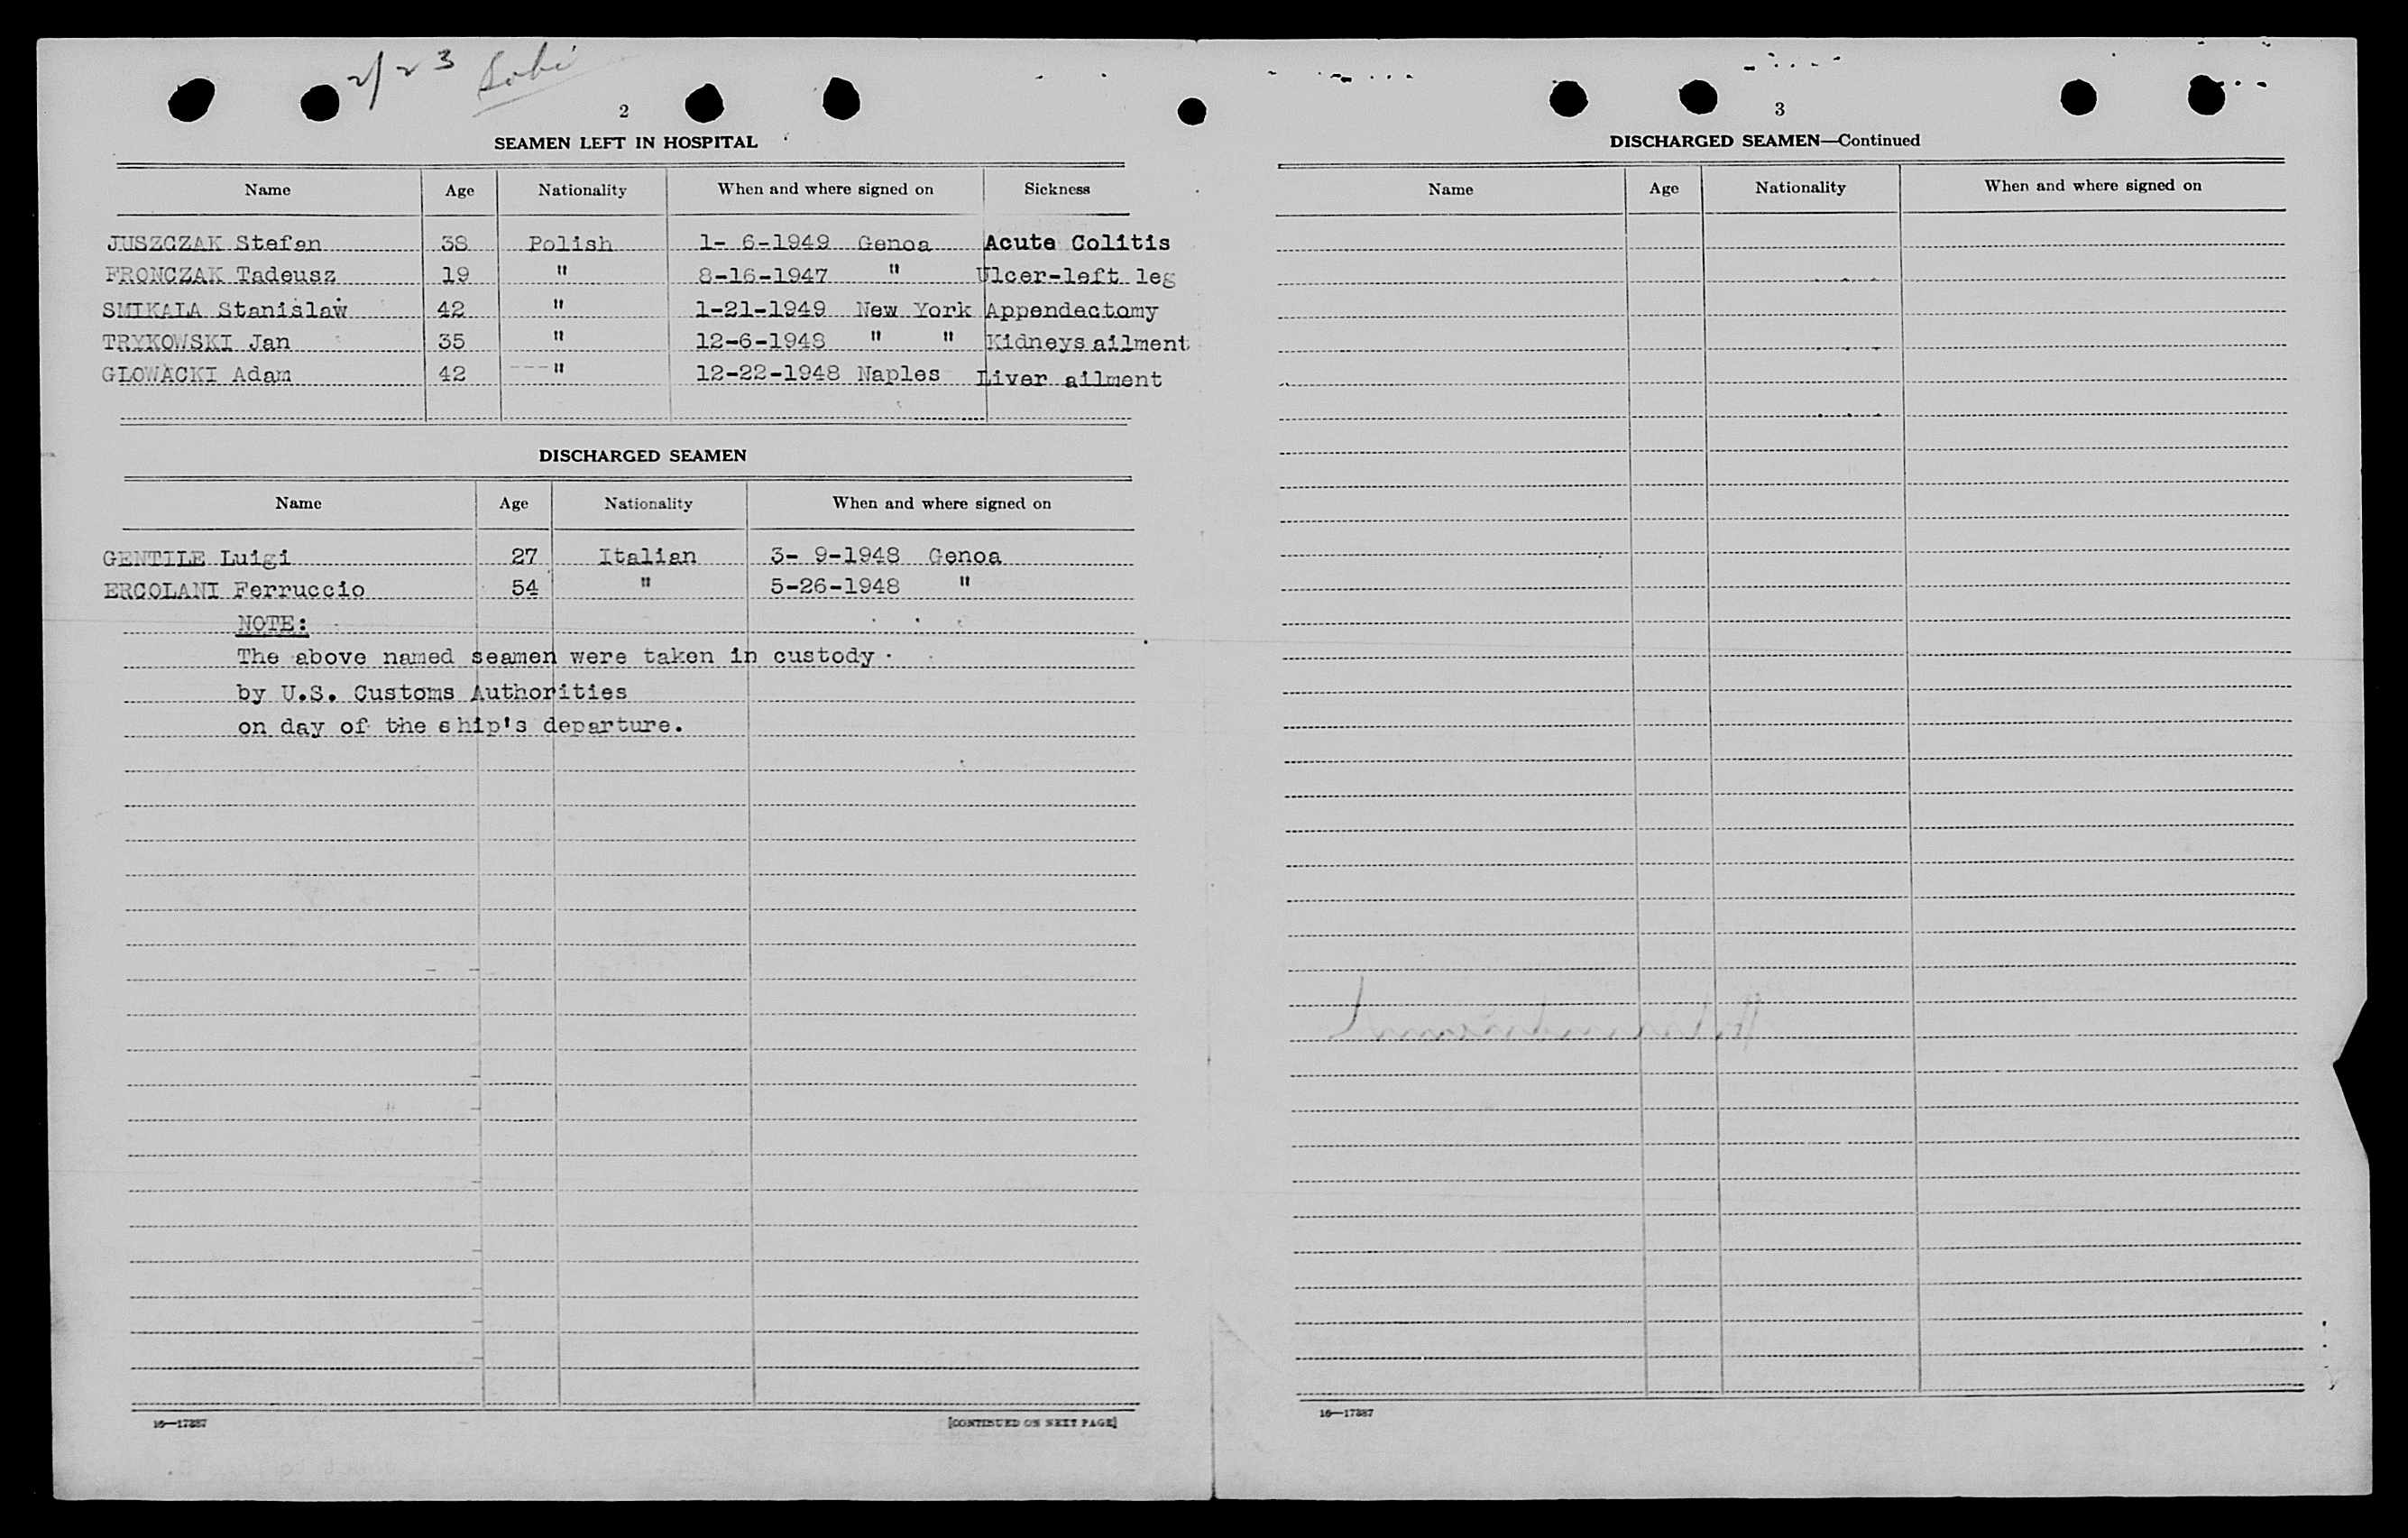 2/23
2
SEAMEN LEFT IN HOSPITAL
Name Age Nationality When and where signed on Sickness
JUSZCZAK Stefan 38 Polish 1- 6-1949 Genoa Acute Colitis
FRONCZAK Tadeusz 19 " 8-16-1947 " Ulcer-left leg
SMIKALA Stanislaw 42 " 1-21-1949 New York Appendectomy
TRYKOWSKI Jan 35 " 12-6-1948 " " Kidneys ailment
GLOWACKI Adam 42 ---" 12-22-1948 Naples Liver ailment
DISCHARGED SEAMEN
Name Age Nationality When and where signed on
GENTILE Luigi 27 Italian 3- 9-1948 Genoa
ERCOLANI Ferruccio 54 " 5-26-1948 "
NOTE:
The above named seamen were taken in custody
by U.S. Customs Authorities
on day of the ship's departure.
16—17387
[CONTINUED ON NEXT PAGE]
3
DISCHARGED SEAMEN—Continued
Name Age Nationality When and where signed on
16—17387